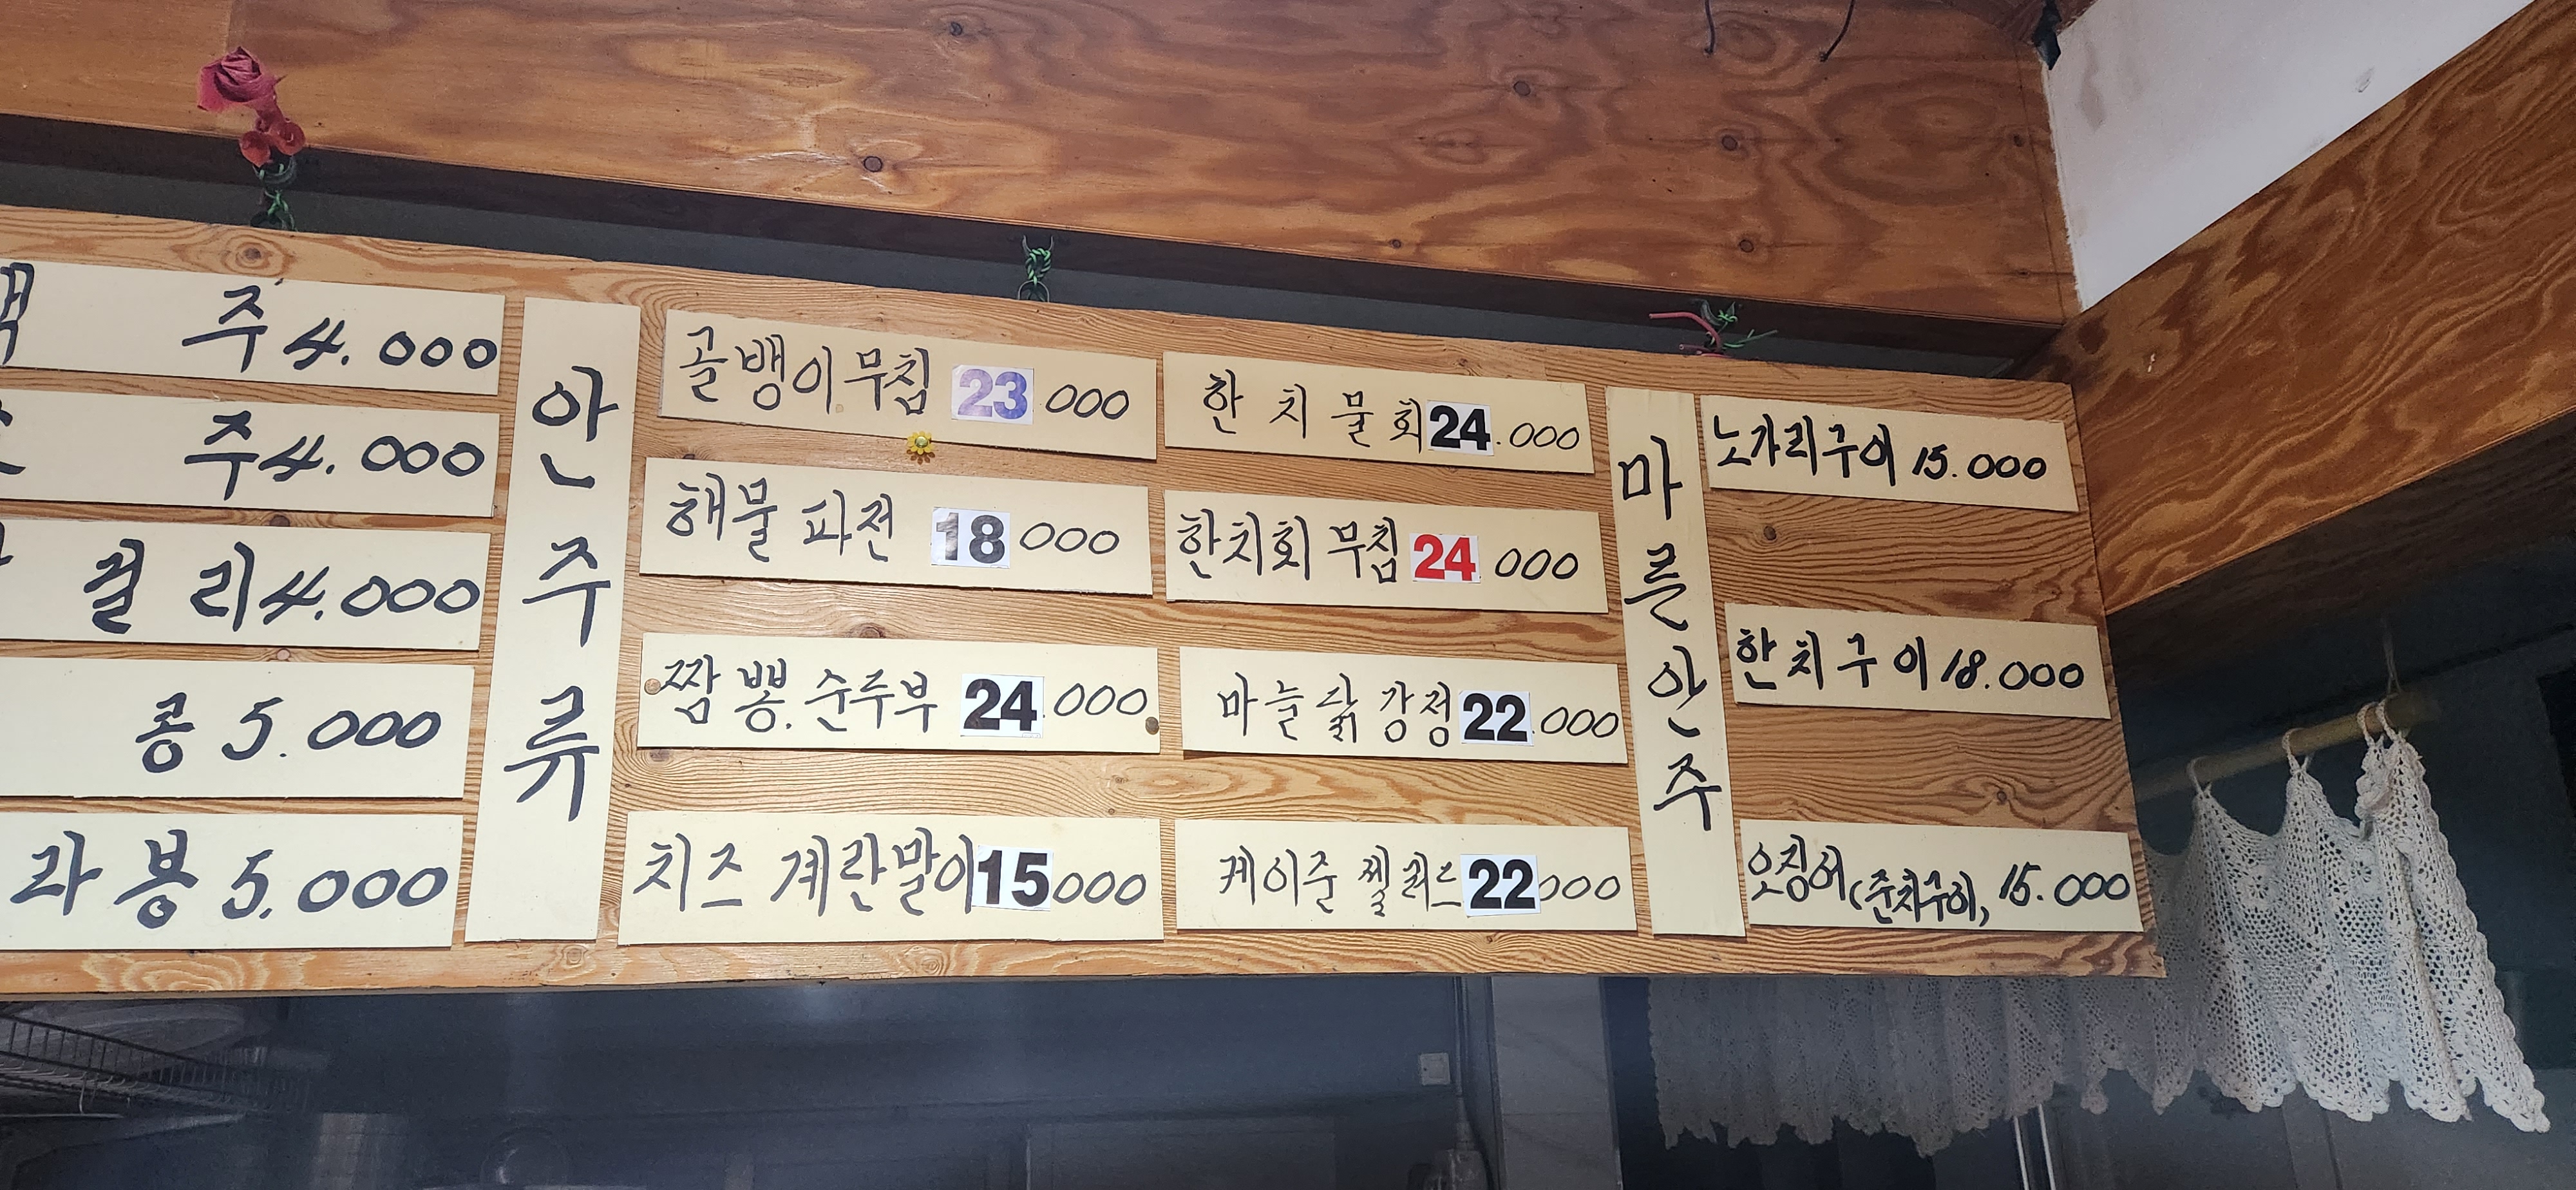 주 4.000
주 4.000
걸 리 4.000
콩 5.000
라 봉 5.000
안주류
골뱅이무침 23 000
해물 파전 18 000
짬뽕.순두부 24.000
치즈 계란말이 15 000
한 치 물 회 24.000
한치회 무침 24 000
마늘 닭 강정 22.000
케이준 샐러드 22 000
마른안주
노가리구이 15.000
한치구이 18.000
오징어(준치구이) 15.000